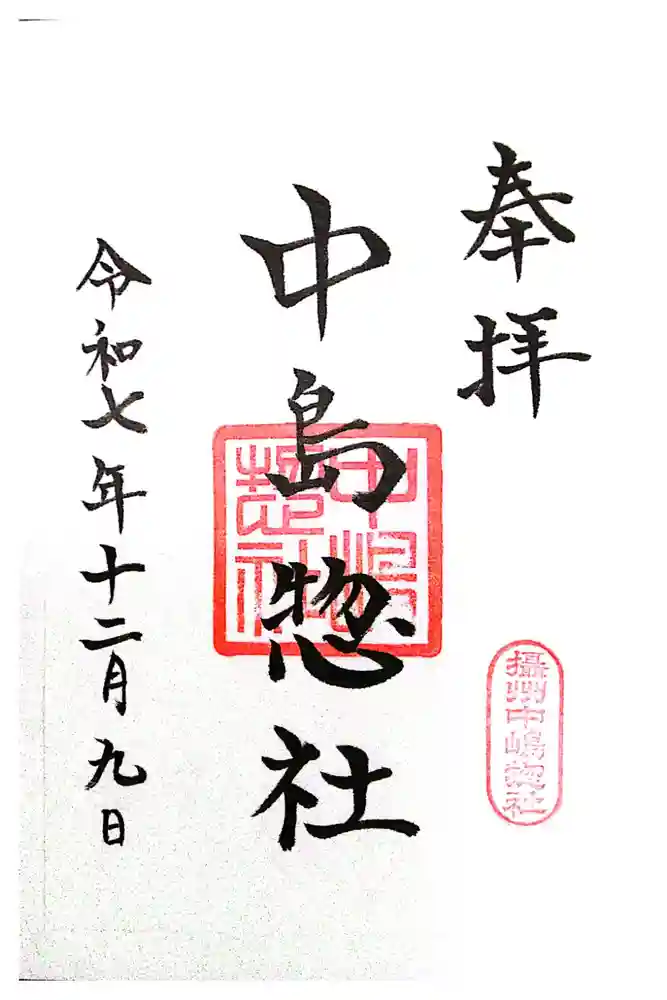 奉拝
攝州中嶋惣社
中島惣社
中嶋惣社
令和七年十二月九日